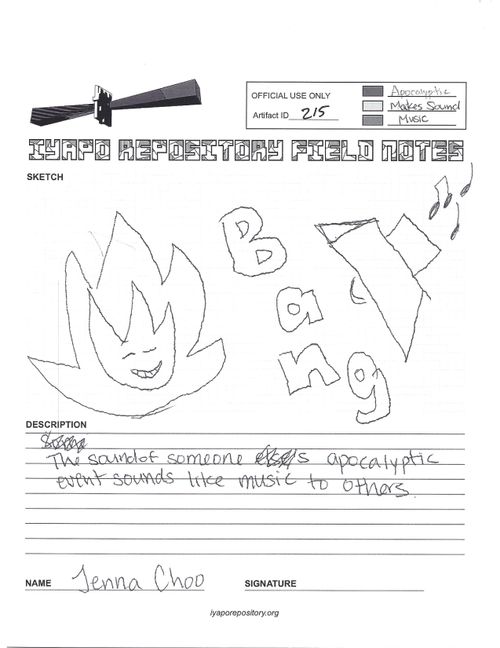 OFFICIAL USE ONLY
Artifact ID 215
Apocalyptic
Makes Sound
Music
IYAPO REPOSITORY FIELD NOTES
SKETCH
Bang
DESCRIPTION
The sound of someone s apocalyptic
event sounds like music to others.
NAME Jenna Choo
SIGNATURE
iyaporepository.org